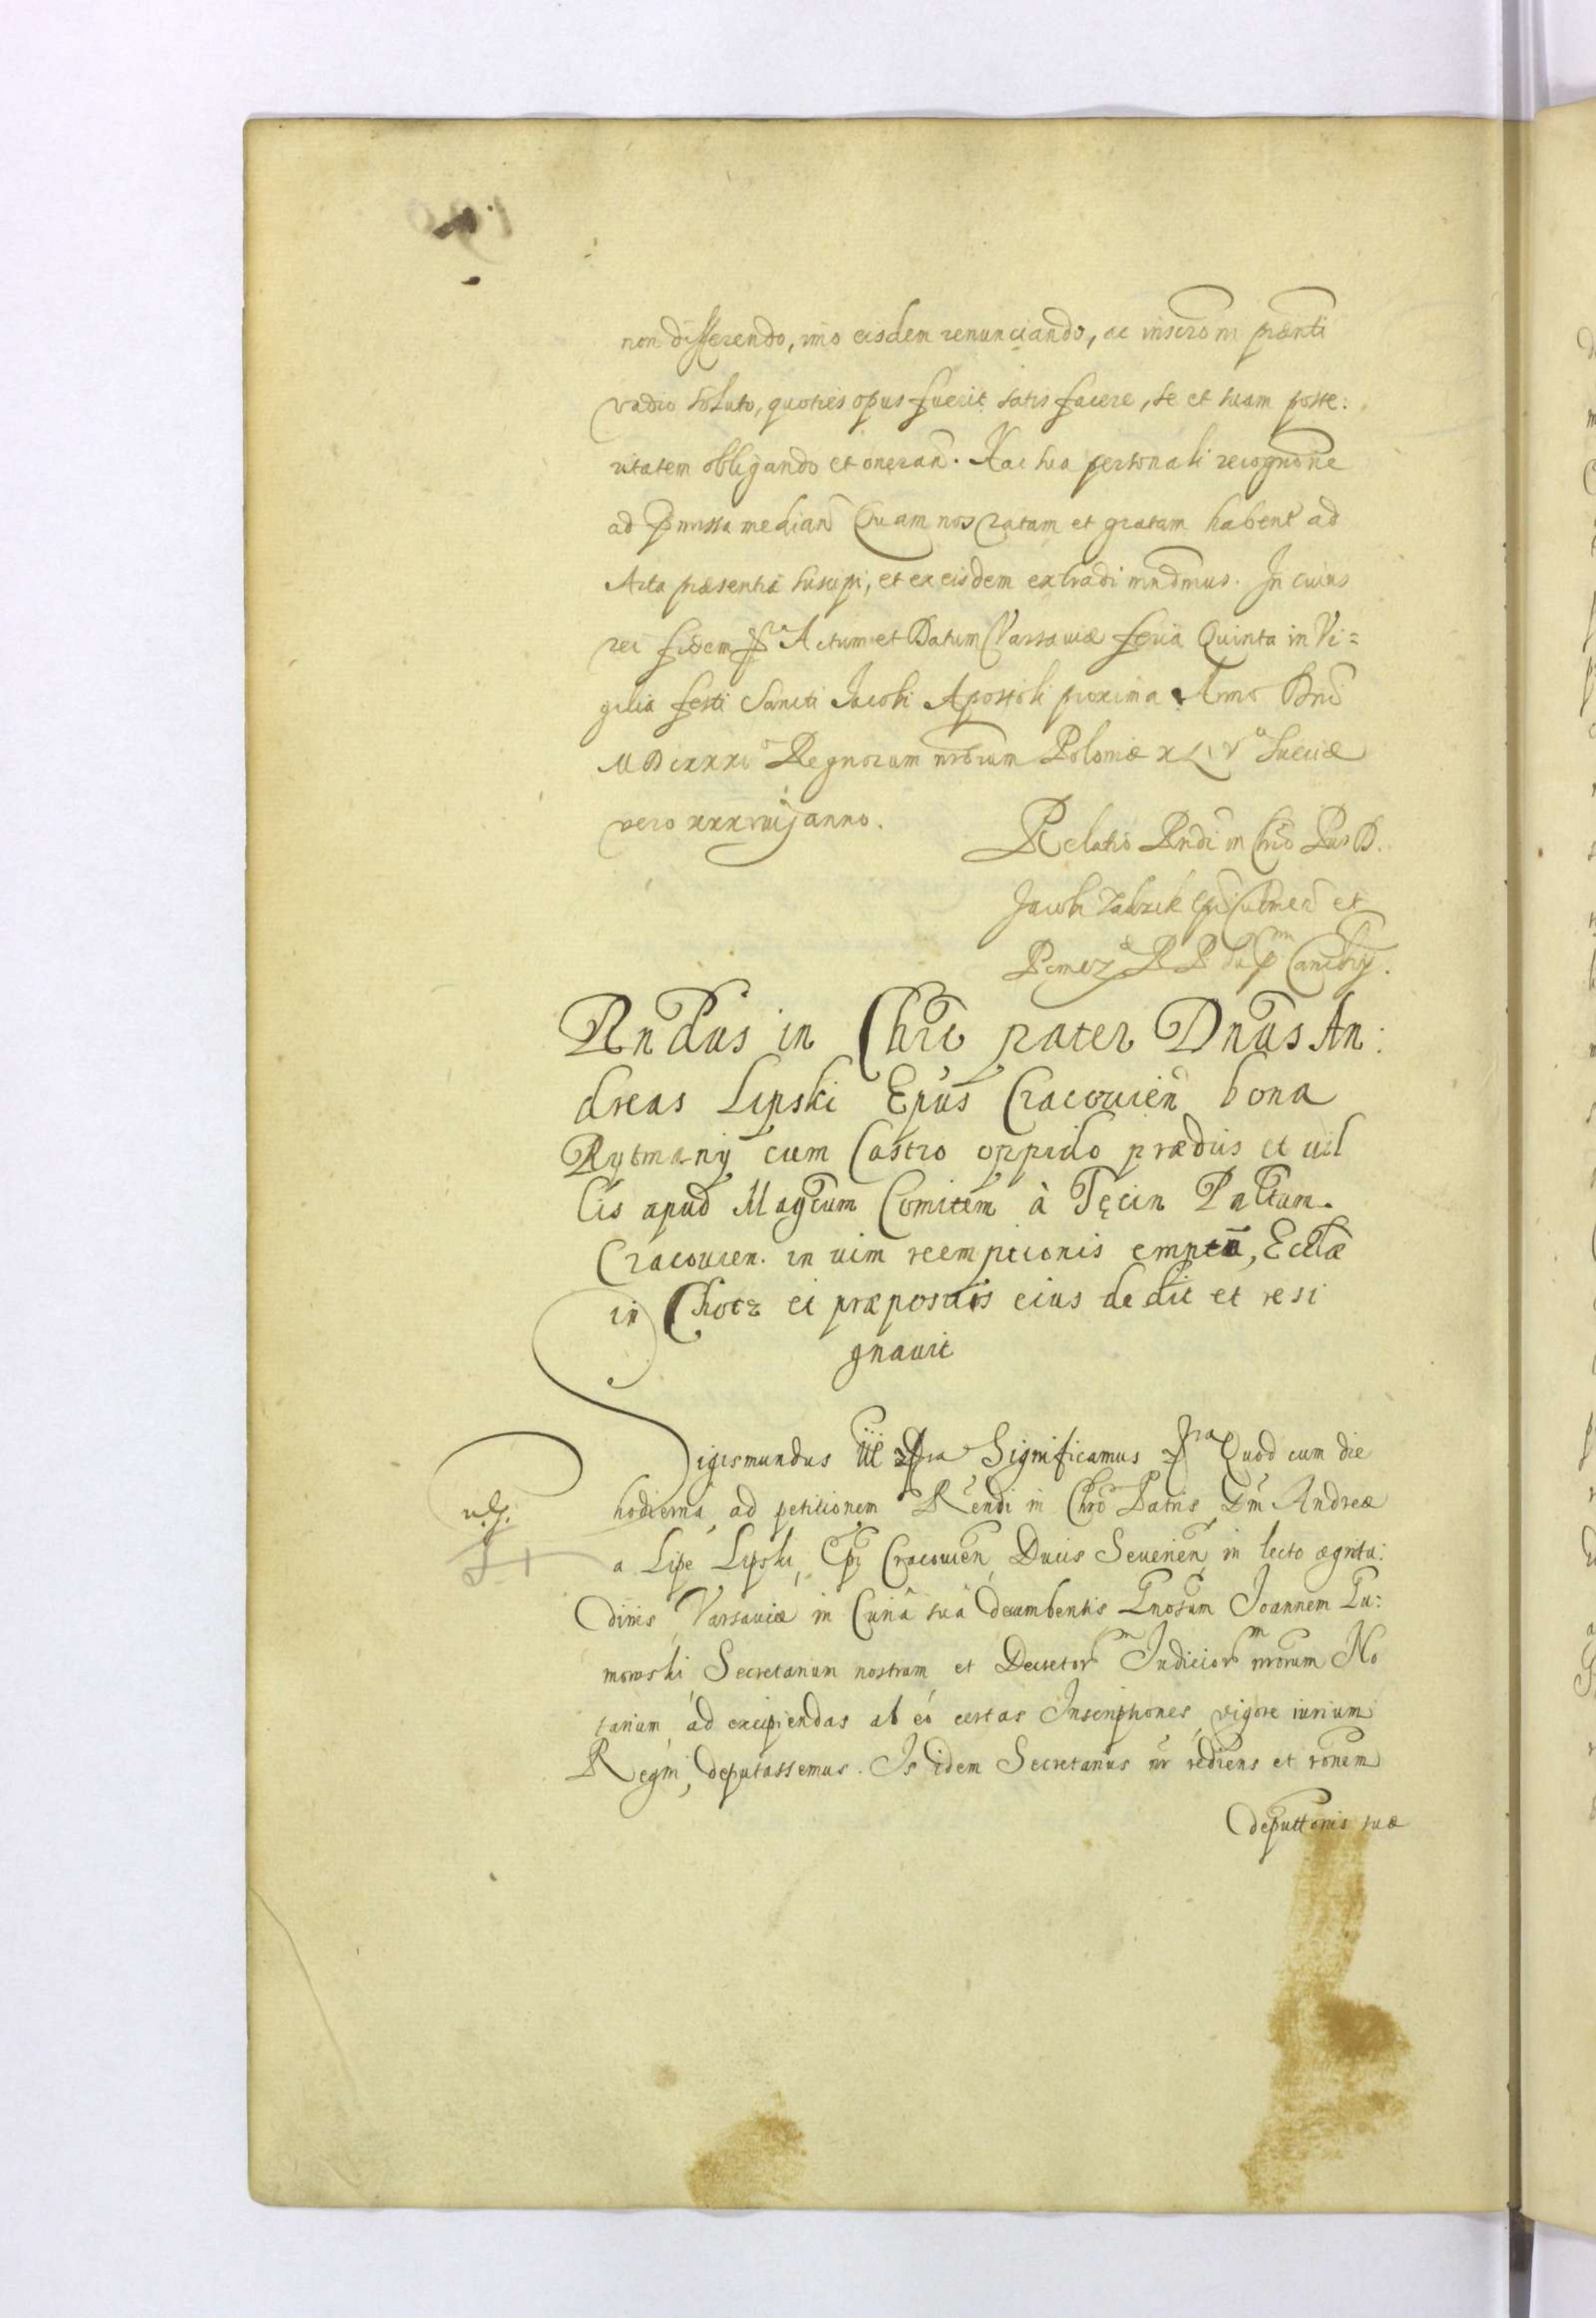 non differendo, imo eisdem renunciando, ac inscrōni prænti
vadio soluto, quoties opus fuerit satis facere, se et suam poste:
ritatem obligando et oneran̄. Hac sua personali recognōne
ad p̄missa median̄ Quam nos ratam et gratam haben̄ ad
Acta præsentia suscipi, et ex eisdem extradi mn̄dmus. In cuius
rei fidem Actum et Datum Varsauiæ feria Quinta in Vi=
gilia festi Sancti Jacobi Apostoli proxima Anno Dn̄i
MDCXXXI Regnorum nrōrum Poloniæ XLIV° Sueciæ
vero xxxviij anno.
Relatio Rn̄di in Chrō Pris D.
Jacobi Zadzik Ep̄i Culmen̄ et
Pomez R P Sup Cancrij.
Rn̄dus in Chrō pater Dn̄us An:
dreas Lipski Ep̄us Cracouien̄ bona
Rytmanÿ cum Castro oppido prædiis et uil
lis apud Magcum Comitem à Tęcin Paltum.
Cracouien. in uim reemptionis empta, Eccłæ
in Chotz ei præpositis eius dedit et resi
gnauit
Sigismundus III Significamus Quod cum die
hodierna ad petitionem R̄endi in Chrō Patris Dn̄i Andreæ
a Lipe Lipski, Ep̄i Cracouien̄, Ducis Seuerien̄ in lecto ægritu:
dinis Varsauiæ in Curiâ suâ decumbentis Gnōsum Joannem Tu:
mowski Secretarium nostrum et Decretor̄ Judicior̄ nrōrum No
tarium ad excipiendas ab eo certas Inscriptiones vigore iurium
Regni, deputassemus. Is idem Secretarius nr̄ rediens et rōnem
deputtonis suæ